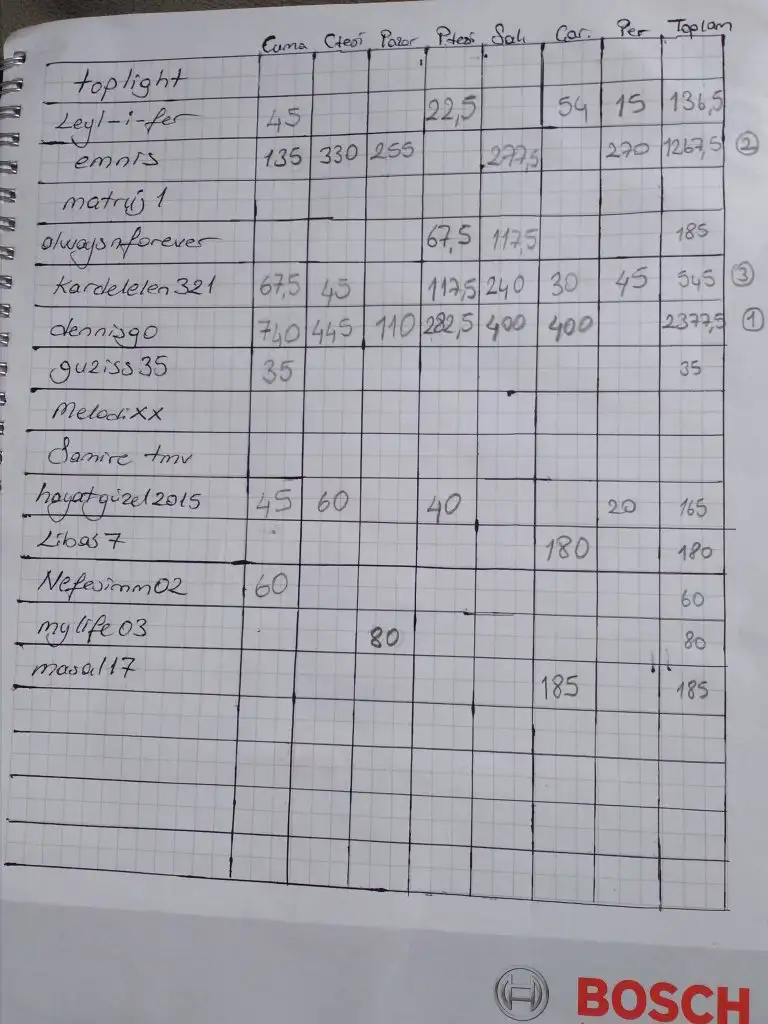 Cuma Ctesi Pazar Ptesi Salı Çar. Per Toplam
toplight
Leyl-i-fer 45 22,5 54 15 136,5
emnis 135 330 255 277,5 270 1267,5 2
matruş 1
alwaysnforever 67,5 117,5 185
Kardelelen321 67,5 45 117,5 240 30 45 545 3
dennisgo 740 445 110 282,5 400 400 2377,5 1
guziss35 35 35
Melodixx
Samire tmv
hayatgüzel2015 45 60 40 20 165
Libas7 180 180
Nefesimm02 60 60
mylife03 80 80
masal17 185 185
BOSCH